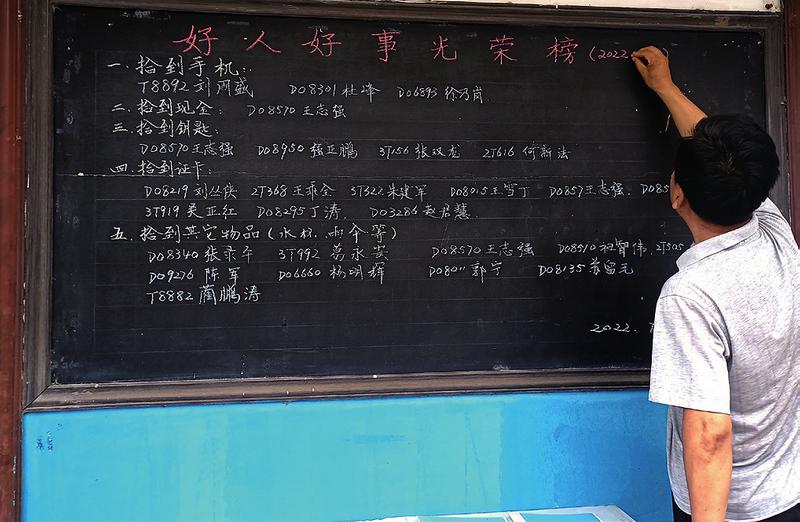 好人好事光荣榜(2022
一.拾到手机:
T8892 刘丙盛 D08301 杜峰 D06893 徐乃岗
二.拾到现金: D08570 王志强
三.拾到钥匙:
D08570 王志强 D08950 强亚鹏 3T156 张双龙 2T616 何新法
四.拾到证卡:
D08219 刘丛侠 2T368 王乖全 3T322 朱建军 D08015 王雪丁 D0857 王志强. D085
3T919 吴亚红 D08295 丁涛. D03286 赵君慧.
五.拾到其它物品(水杯.雨伞等)
D08340 张录平 3T992 葛永安 D08570 王志强 D08510 祖智伟. 2T505
D09276 陈军 D06660 杨明辉 D08011 郭宁 D08135 苏留元
T8882 蔺鹏涛
2022.